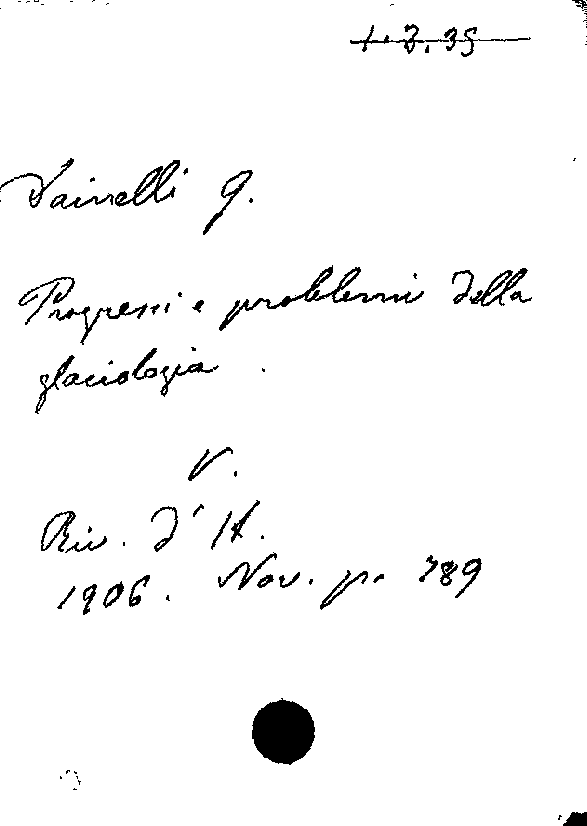 1.3.35
Dainelli G.
Progressi e problemi della
glaciologia.
V.
Riv. d'It.
1906. Nov. p. 789